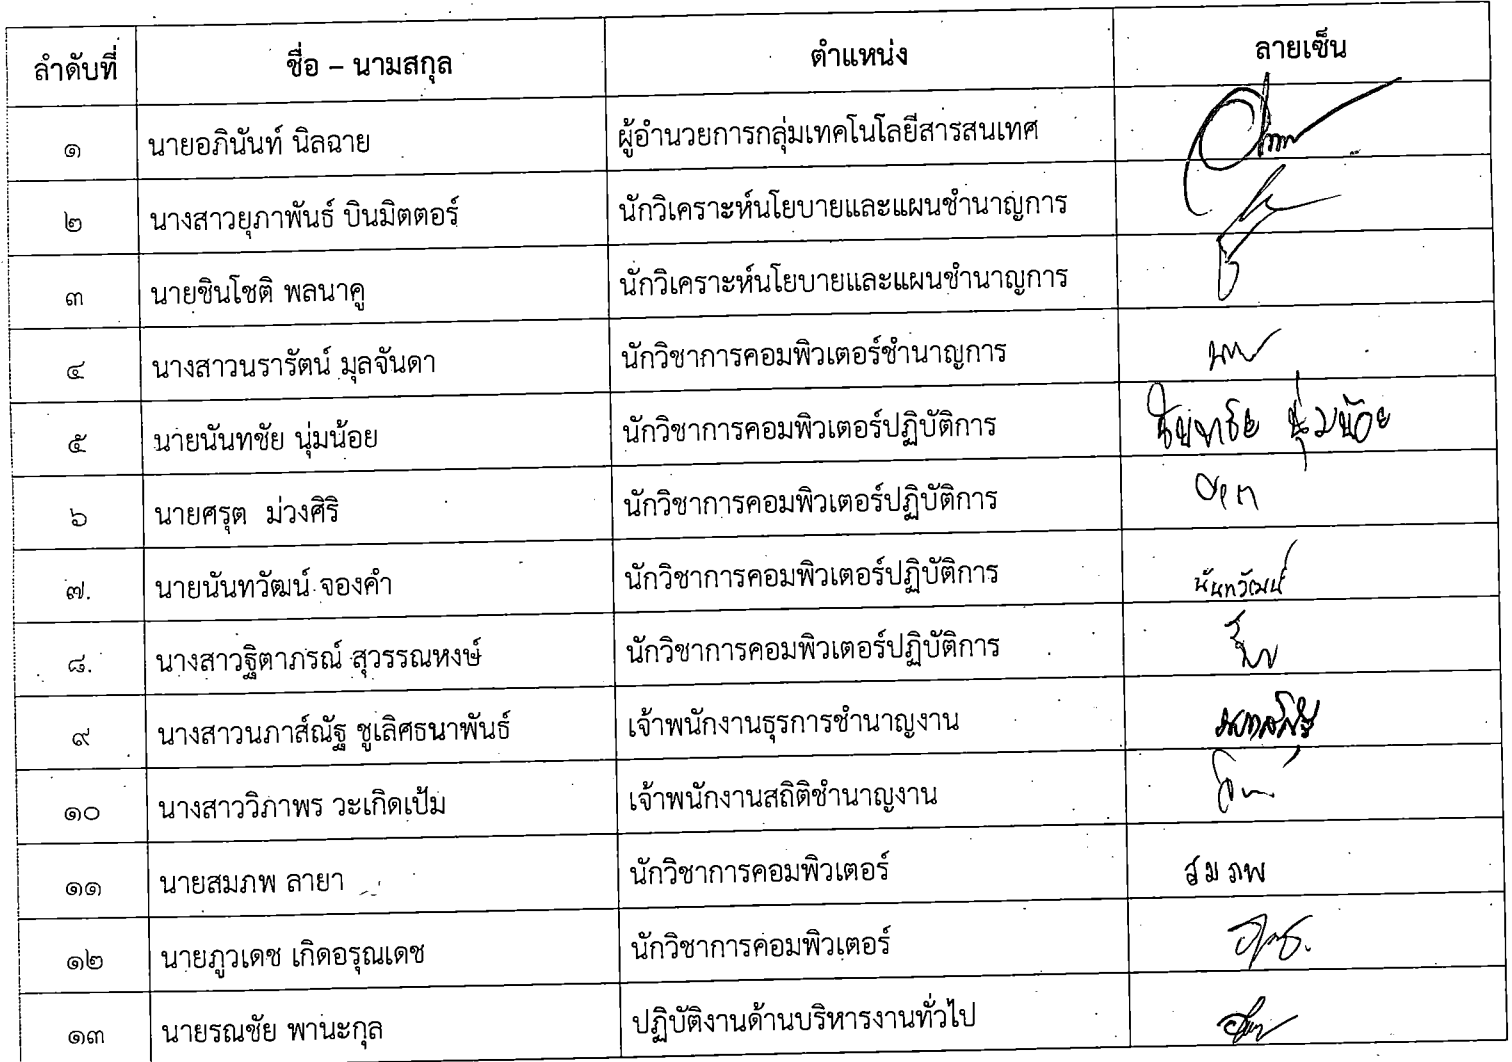 ลำดับที่ ชื่อ – นามสกุล ตำแหน่ง ลายเซ็น
๑ นายอภินันท์ นิลฉาย ผู้อำนวยการกลุ่มเทคโนโลยีสารสนเทศ
๒ นางสาวยุภาพันธ์ บินมิตตอร์ นักวิเคราะห์นโยบายและแผนชำนาญการ
๓ นายชินโชติ พลนาคู นักวิเคราะห์นโยบายและแผนชำนาญการ
๔ นางสาวนรารัตน์ มุลจันดา นักวิชาการคอมพิวเตอร์ชำนาญการ
๕ นายนันทชัย นุ่มน้อย นักวิชาการคอมพิวเตอร์ปฏิบัติการ นันทชัย นุ่มน้อย
๖ นายศรุต ม่วงศิริ นักวิชาการคอมพิวเตอร์ปฏิบัติการ
๗. นายนันทวัฒน์ จองคำ นักวิชาการคอมพิวเตอร์ปฏิบัติการ นันทวัฒน์
๘. นางสาวฐิตาภรณ์ สุวรรณหงษ์ นักวิชาการคอมพิวเตอร์ปฏิบัติการ
๙ นางสาวนภาส์ณัฐ ชูเลิศธนาพันธ์ เจ้าพนักงานธุรการชำนาญงาน
๑๐ นางสาววิภาพร วะเกิดเป้ม เจ้าพนักงานสถิติชำนาญงาน
๑๑ นายสมภพ ลายา นักวิชาการคอมพิวเตอร์ สมภพ
๑๒ นายภูวเดช เกิดอรุณเดช นักวิชาการคอมพิวเตอร์
๑๓ นายรณชัย พานะกุล ปฏิบัติงานด้านบริหารงานทั่วไป